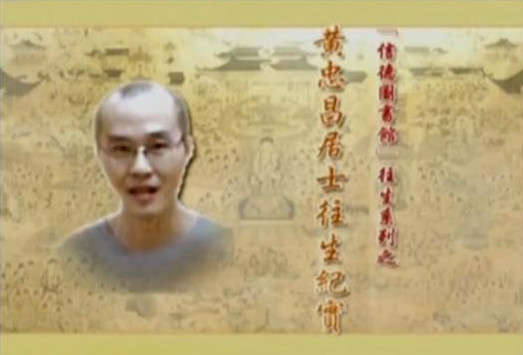 「信德圖書館」往生系列之
黃忠昌居士往生紀實